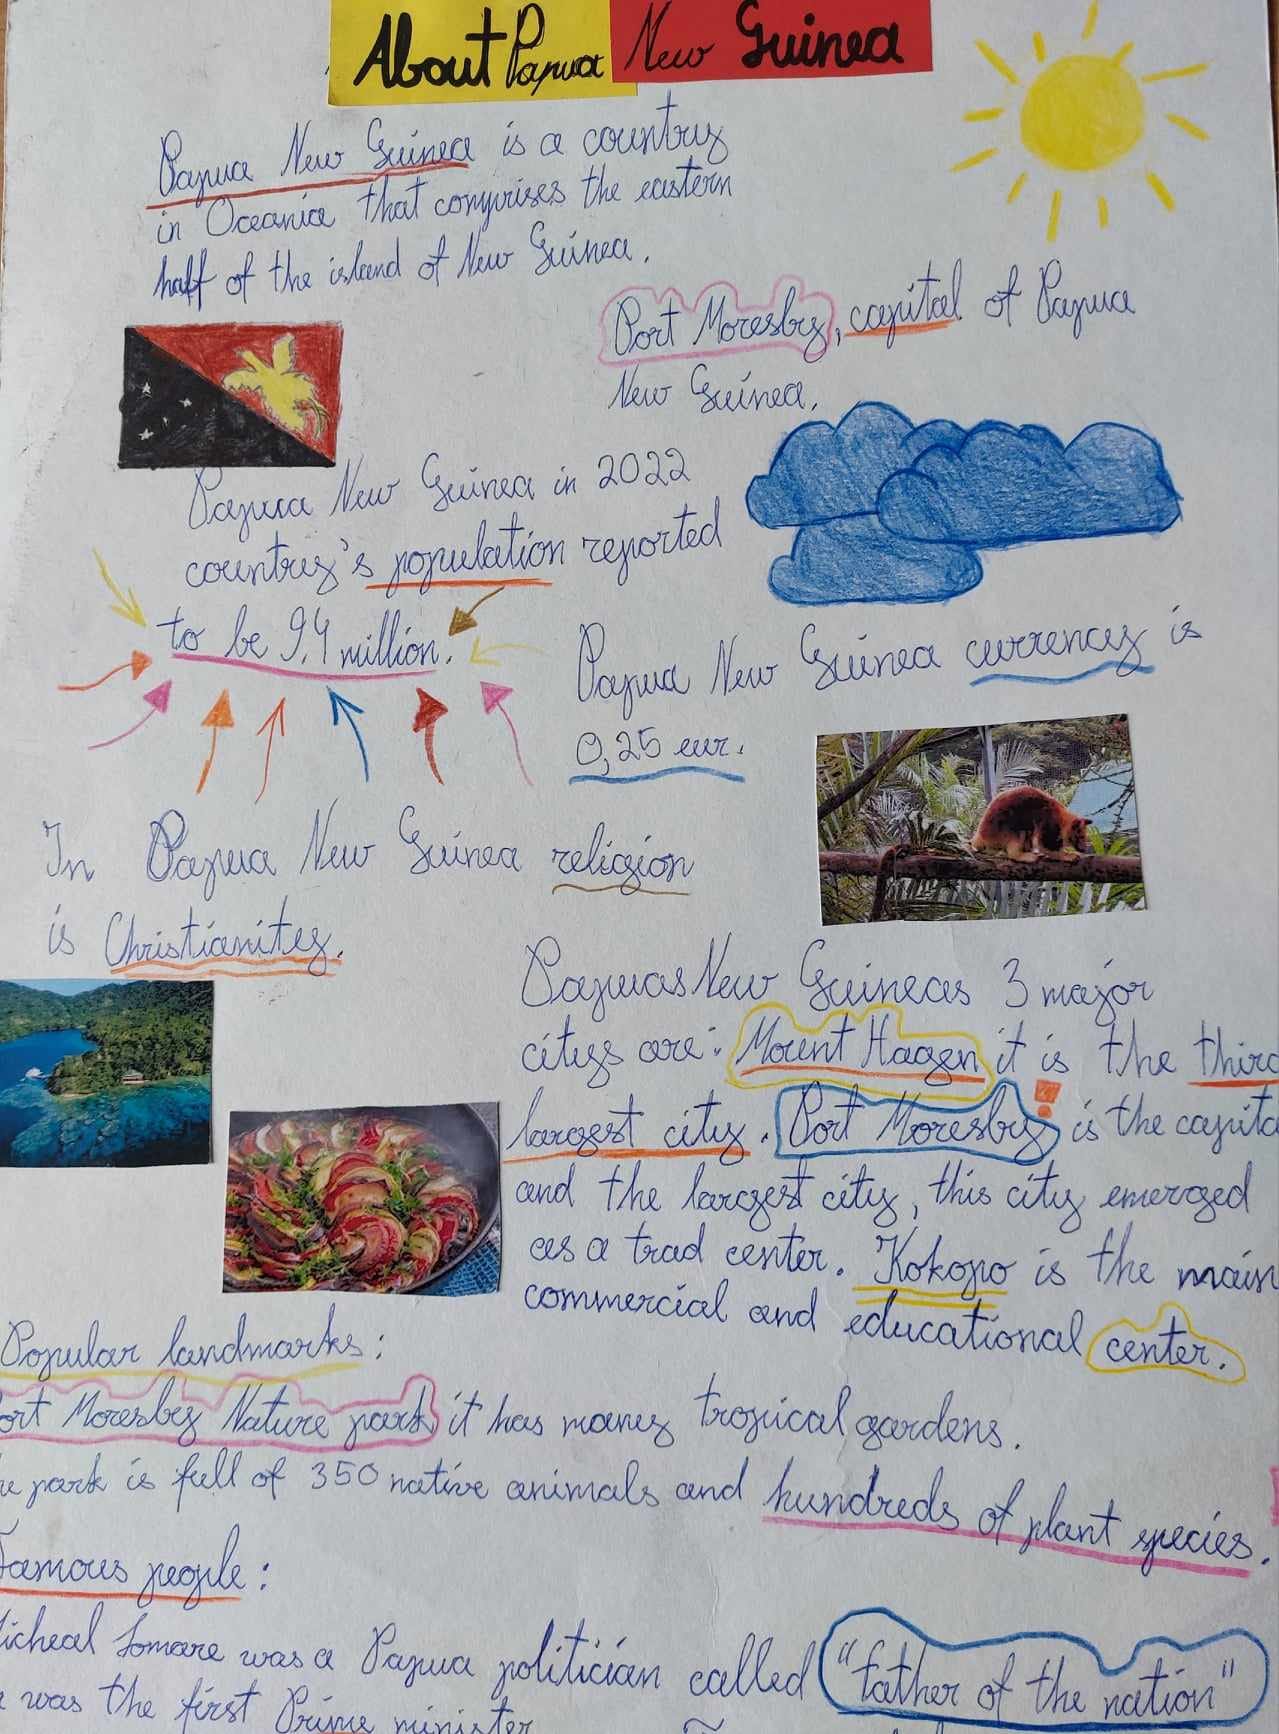 About Papua New Guinea
Papua New Guinea is a country
in Oceania that comprises the eastern
half of the island of New Guinea.
Port Moresby, capital of Papua
New Guinea.
Papua New Guinea in 2022
country's population reported
to be 9,4 million.
Papua New Guinea currency is
0,25 eur.
In Papua New Guinea religion
is Christianity.
Papuas New Guineas 3 major
citys are: Mount Hagen it is the third
largest city. Port Moresby! is the capita
and the largest city, this city emerged
as a trad center. Kokopo is the main
commercial and educational center.
Popular landmarks:
ort Moresby Nature park it has many tropical gardens.
he park is full of 350 native animals and hundreds of plant species.
Famous people:
icheal Somare was a Papua politician called "father of the nation"
e was the first Prime minister